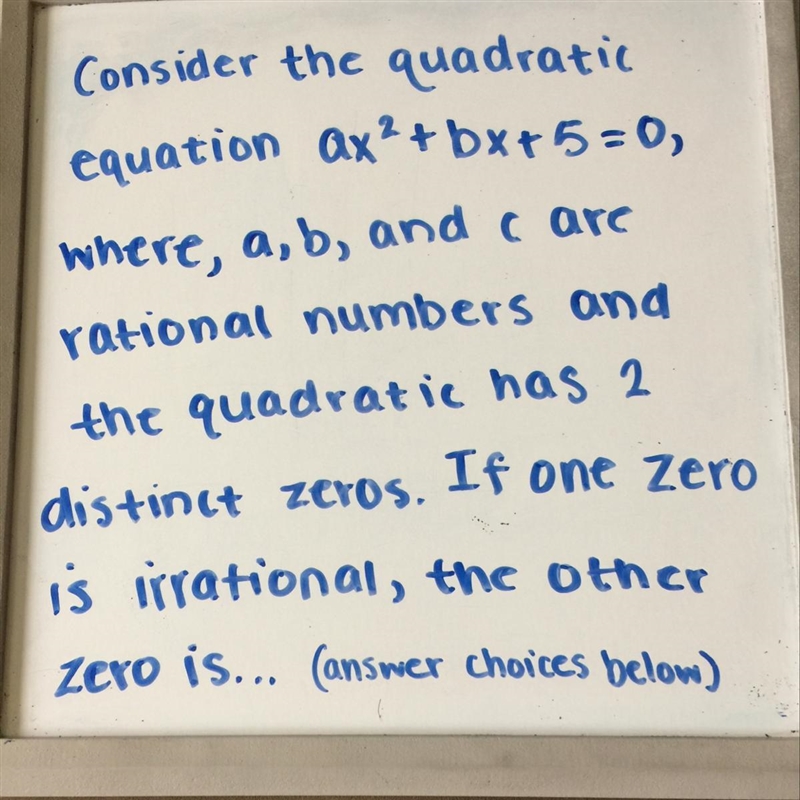 Consider the quadratic
equation ax²+bx+5=0,
where, a,b, and c are
rational numbers and
the quadratic has 2
distinct zeros. If one zero
is irrational, the other
zero is... (answer choices below)